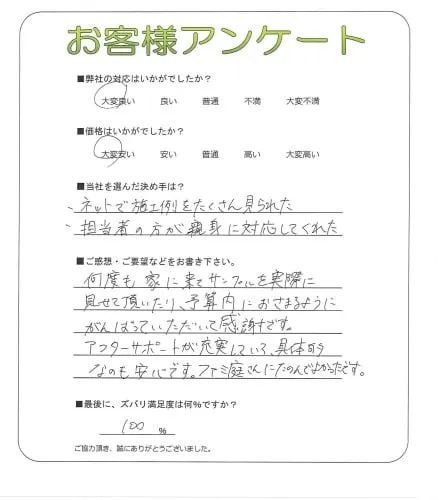 お客様アンケート
■弊社の対応はいかがでしたか？
大変良い 良い 普通 不満 大変不満
■価格はいかがでしたか？
大変安い 安い 普通 高い 大変高い
■当社を選んだ決め手は？
、ネットで施工例をたくさん見られた
、担当者の方が親身に対応してくれた
■ご感想・ご要望などをお書き下さい。
何度も家に来てサンプルを実際に
見せて頂いたり、予算内におさまるように
がんばっていただいて感謝です。
アフターサポートが充実していて、具体的
なのも安心です。ファミ庭さんにたのんでよかったです。
■最後に、ズバリ満足度は何％ですか？
100 ％
ご協力頂き、誠にありがとうございました。